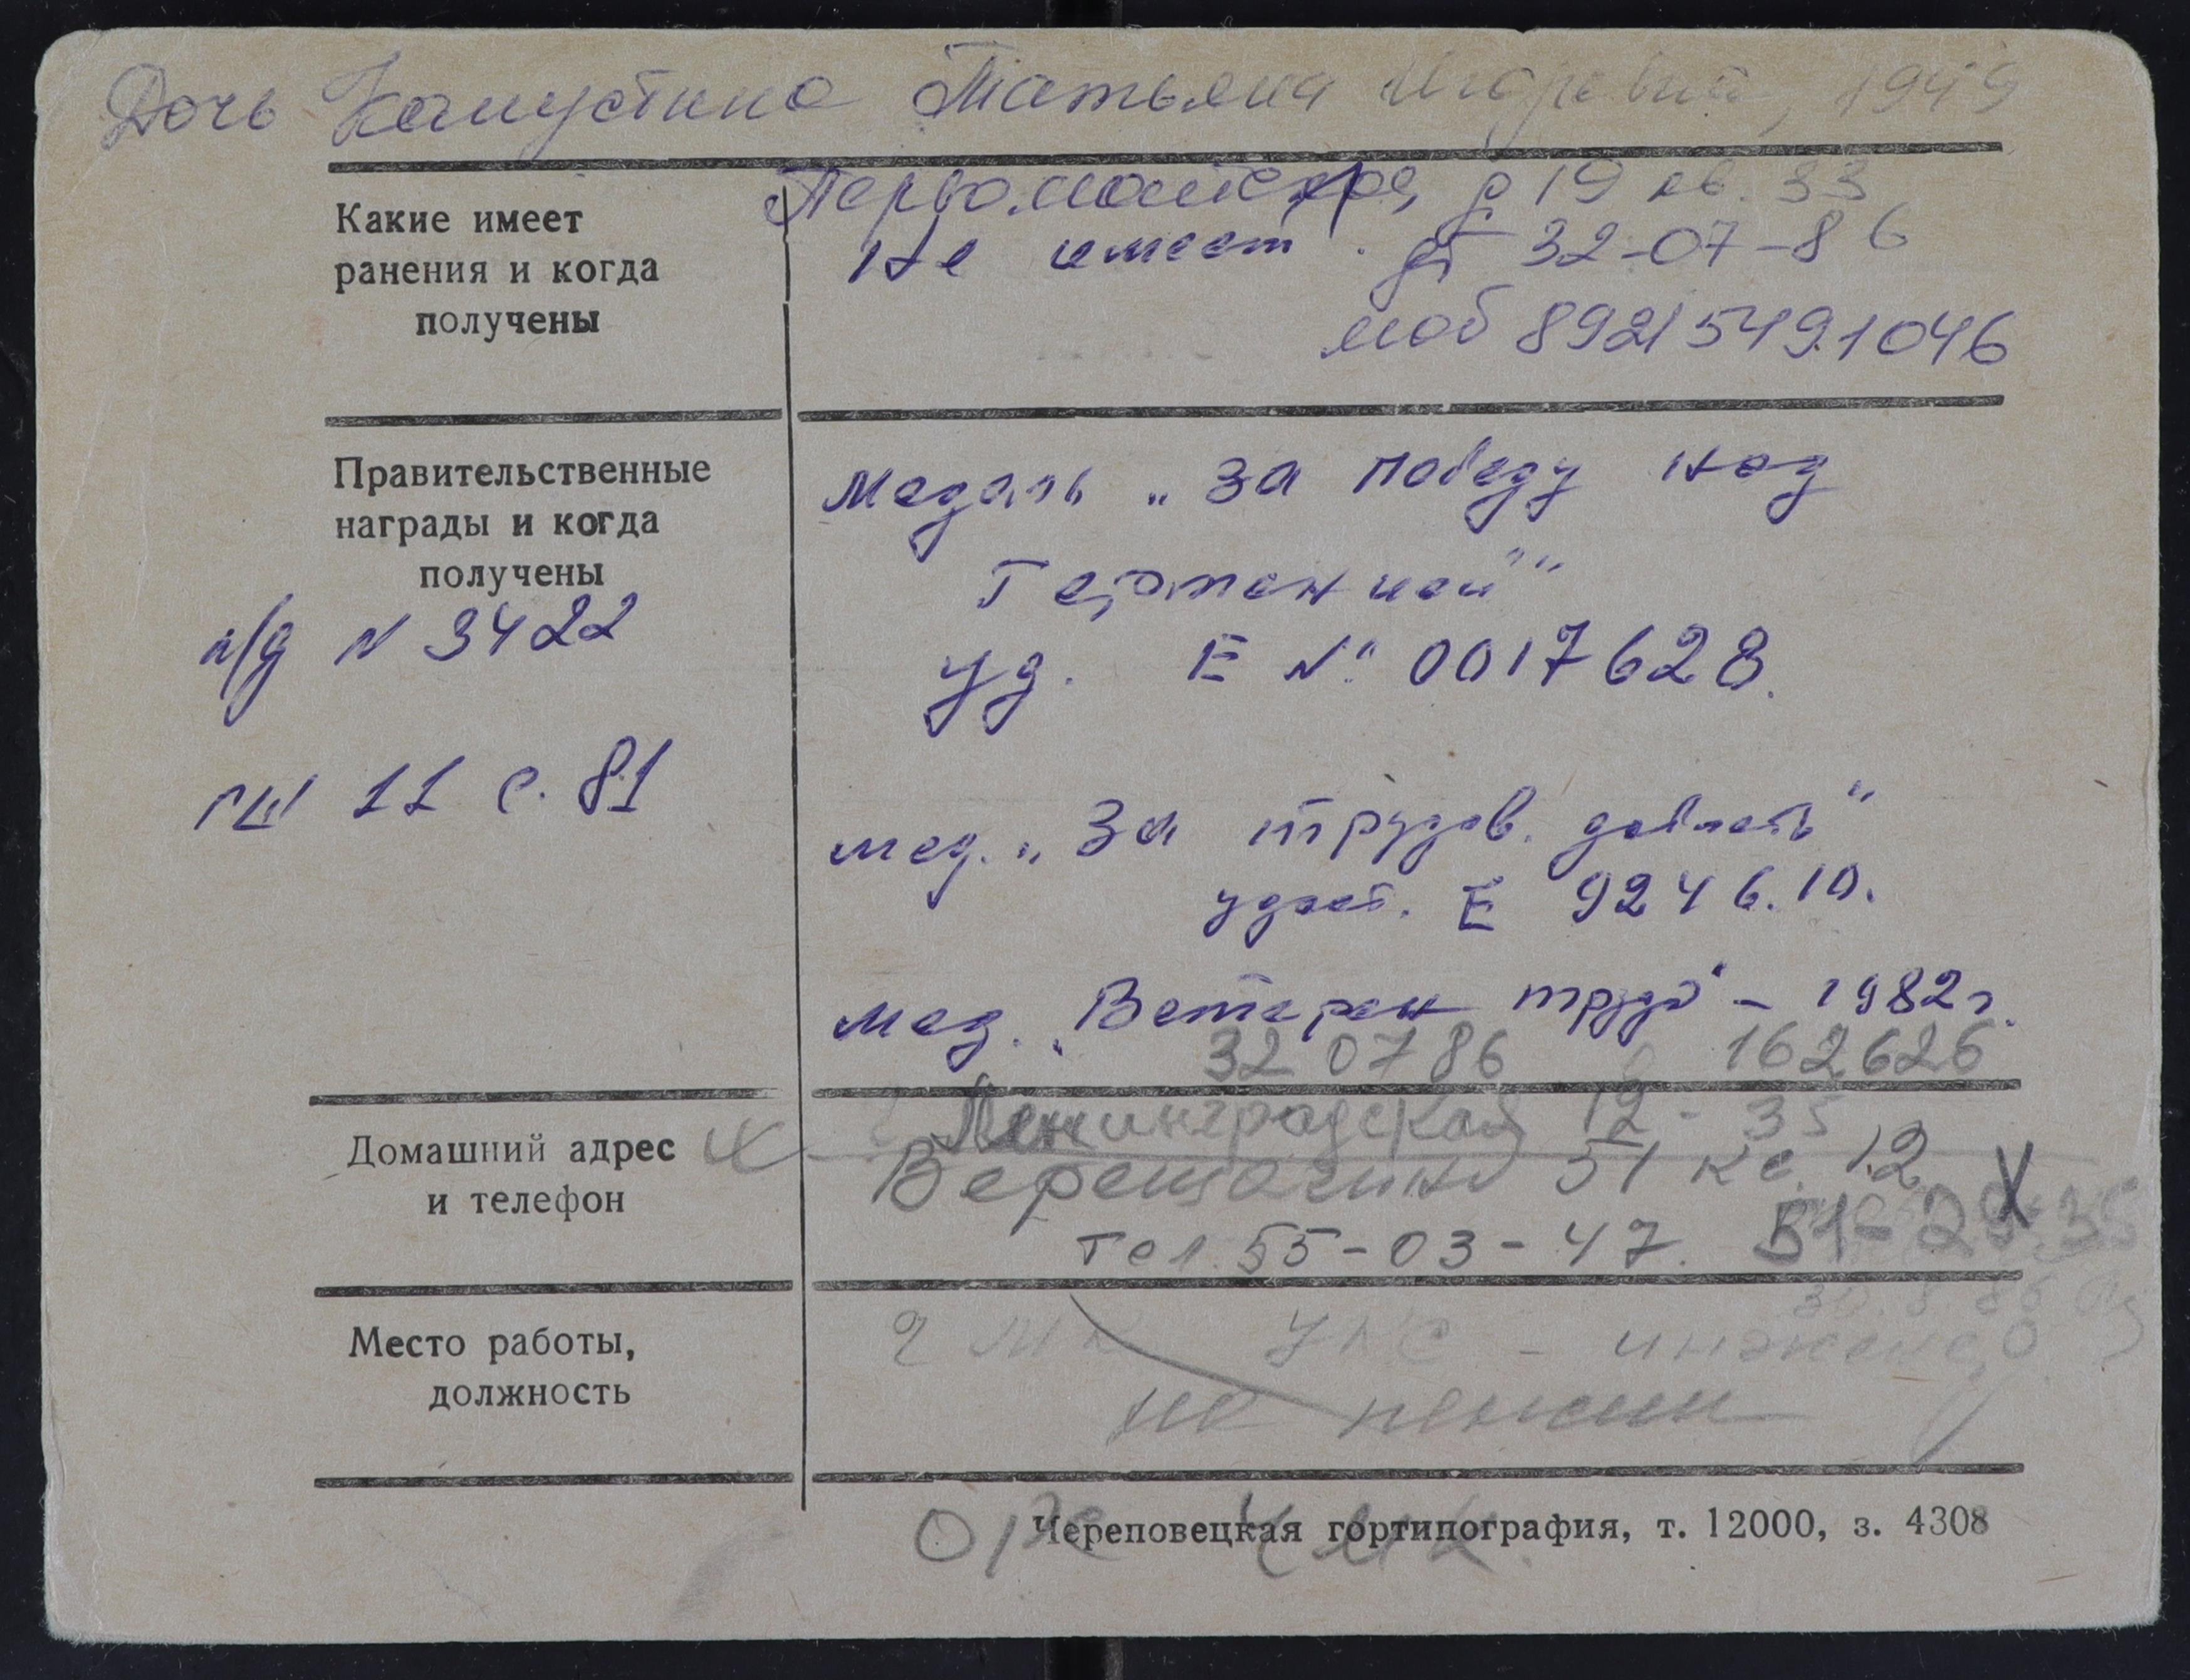 Дочь Капустина Татьяна Игоревна, 1949
Первомайская, д 19 кв. 33
Какие имеет
ранения и когда
получены
Не имеет. дт 32-07-86
моб 89215491046
Правительственные
награды и когда
получены
Медаль „За победу над
Германией"
п/д N 3422
уд. Е № 0017628.
ГШ 11 с. 81
мед. „За трудов. доблесть"
удост. Е 924610.
мед. „Ветеран труда" - 1982 г.
32 07 86 162626
Домашний адрес
и телефон
Ленинградская 12-35
Верещагина 51 кв. 12
тел. 55-03-47. 51-29-35
Место работы,
должность
ЧМК УКС - инженер
на пенсии
Череповецкая гортипография, т. 12000, з. 4308